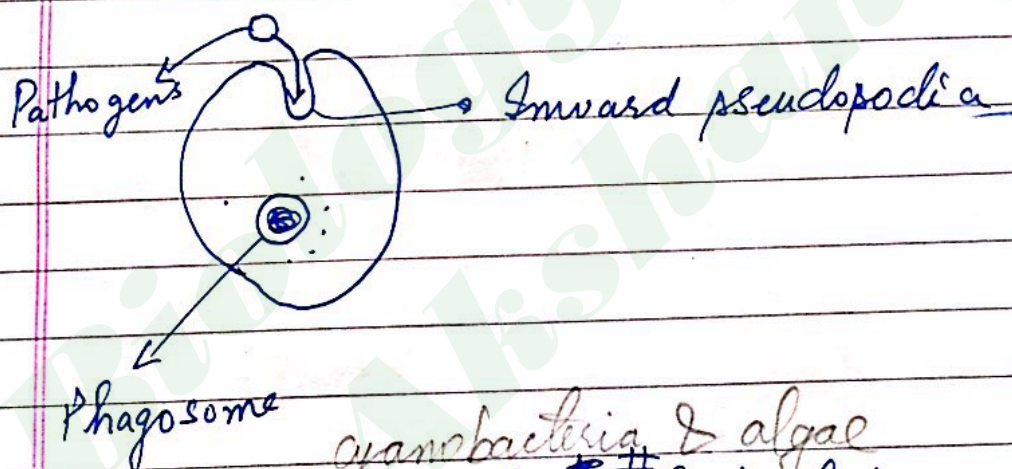 Pathogens
Inward pseudopodia
Phagosome
cyanobacteria & algae
Biology
Akshar